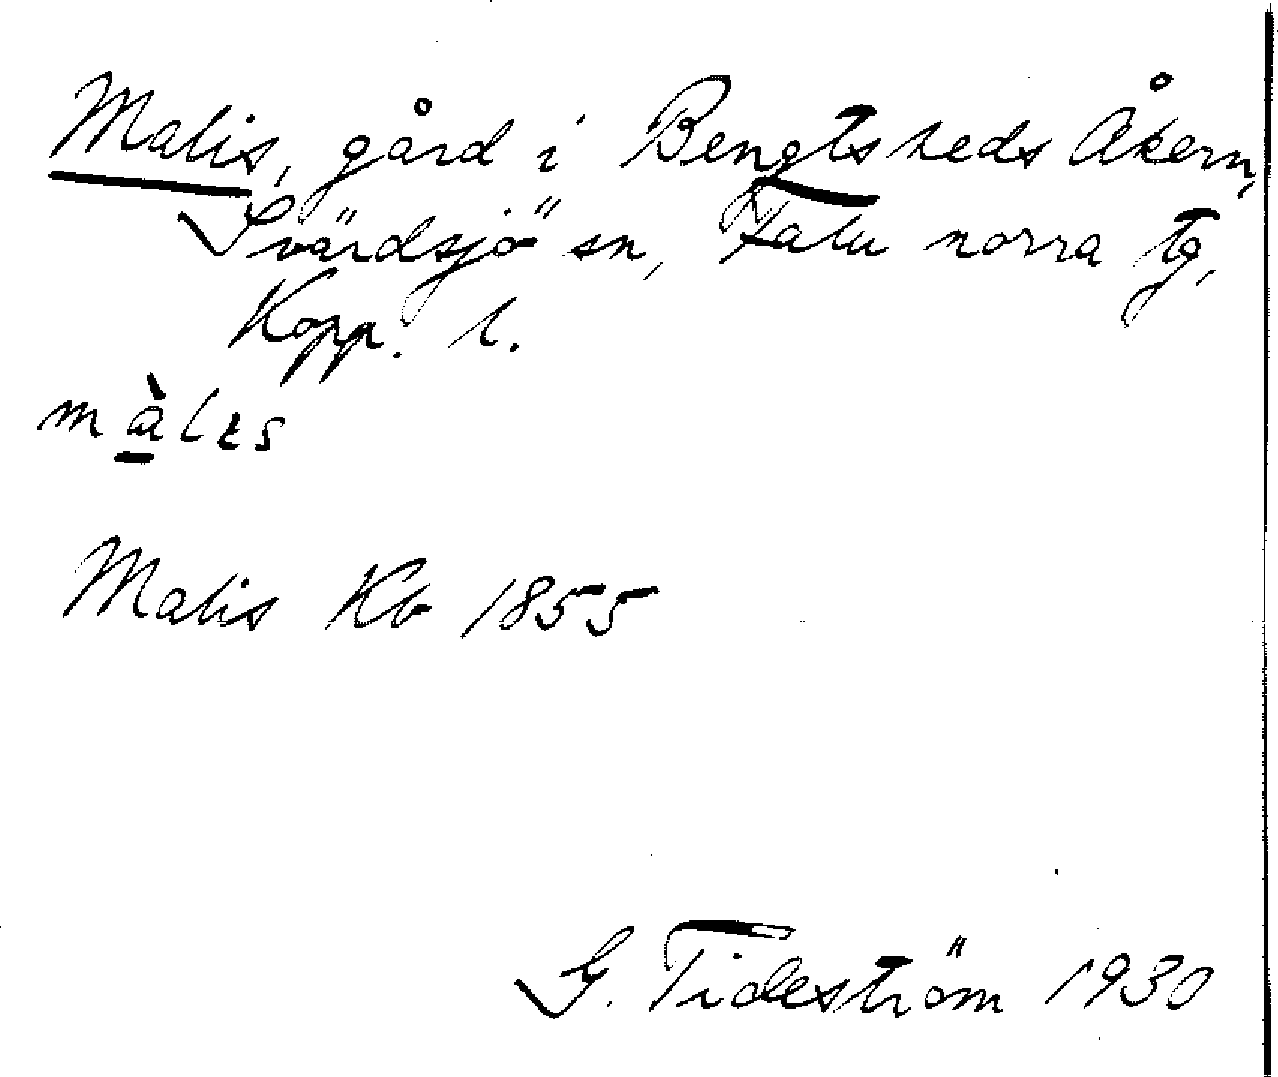 Malis, gård i Bengtsheds Åkern,
Svärdsjö sn, Falu norra tg,
Kopp. l.
màlɩs
Malis Kb 1855
G. Tideström 1930